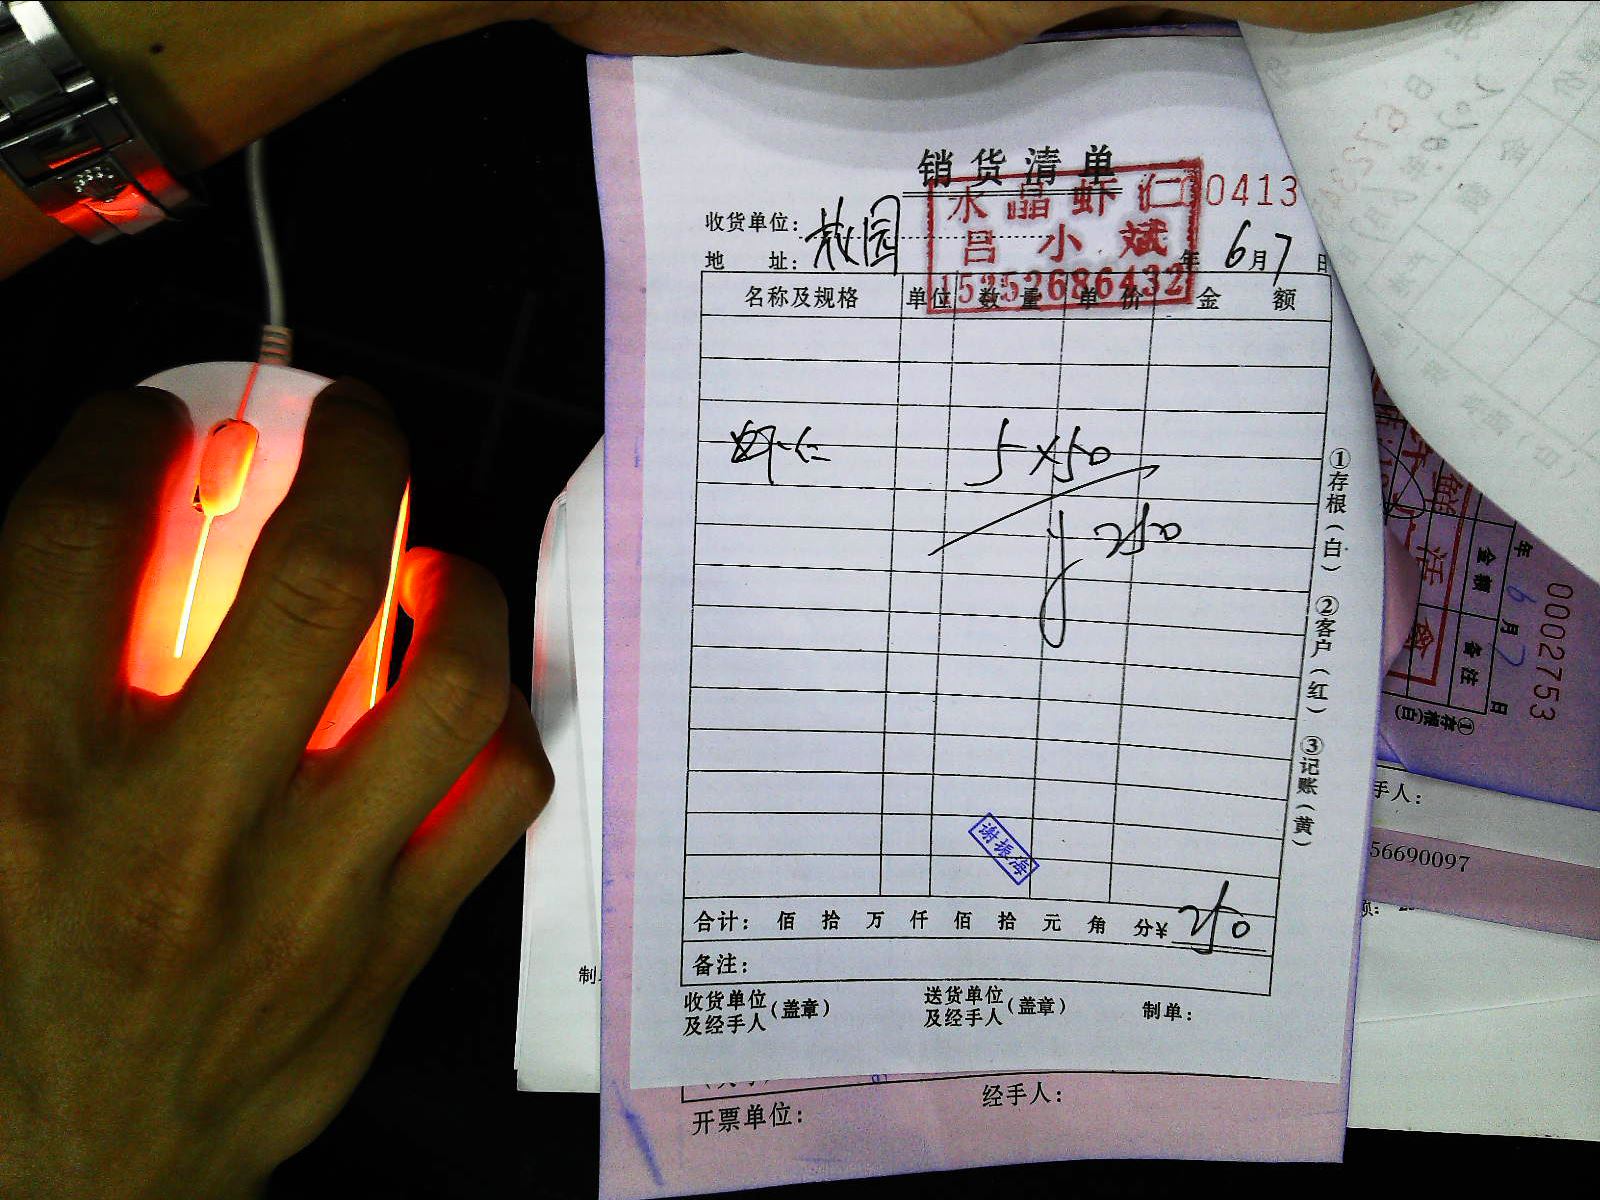 销货清单
水晶虾仁
吕小斌
15252686432
0413
收货单位:
地 址:
年 6月7日
名称及规格 单位 数量 单价 金额
虾仁 5×50
250
谢振海
合计: 佰 拾 万 仟 佰 拾 元 角 分¥ 250
备注:
收货单位及经手人(盖章) 送货单位及经手人(盖章) 制单:
①存根(白) ②客户(红) ③记账(黄)
开票单位: 经手人:
0002753
年 6月7日
金额 备注
①存根(白)
手人:
56690097
制